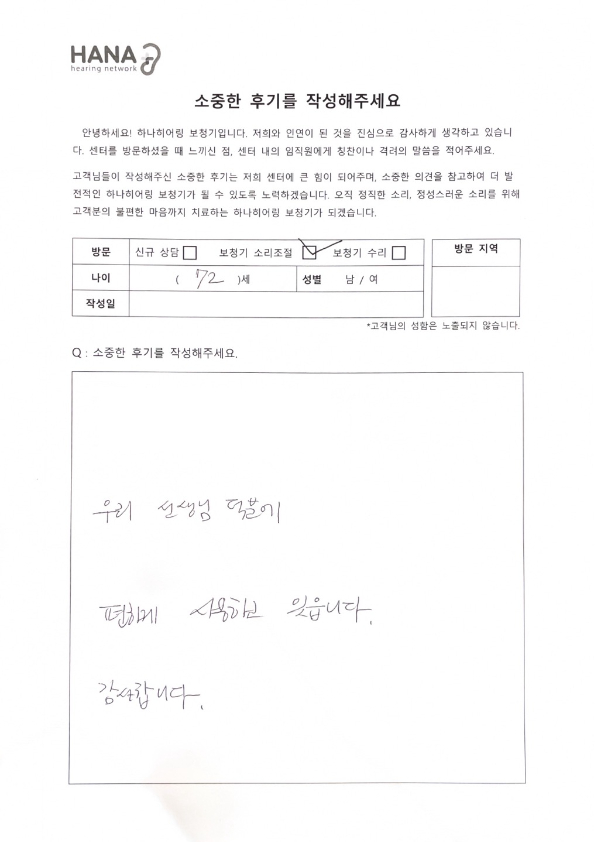 HANA
hearing network
소중한 후기를 작성해주세요
안녕하세요! 하나히어링 보청기입니다. 저희와 인연이 된 것을 진심으로 감사하게 생각하고 있습니
다. 센터를 방문하셨을 때 느끼신 점, 센터 내의 임직원에게 칭찬이나 격려의 말씀을 적어주세요.
고객님들이 작성해주신 소중한 후기는 저희 센터에 큰 힘이 되어주며, 소중한 의견을 참고하여 더 발
전적인 하나히어링 보청기가 될 수 있도록 노력하겠습니다. 오직 정직한 소리, 정성스러운 소리를 위해
고객분의 불편한 마음까지 치료하는 하나히어링 보청기가 되겠습니다.
방문 신규 상담 보청기 소리조절 보청기 수리 방문 지역
나이 ( 72 )세 성별 남 / 여
작성일
*고객님의 성함은 노출되지 않습니다.
Q : 소중한 후기를 작성해주세요.
우리 선생님 덕분에
편하게 사용하고 있읍니다.
감사합니다.